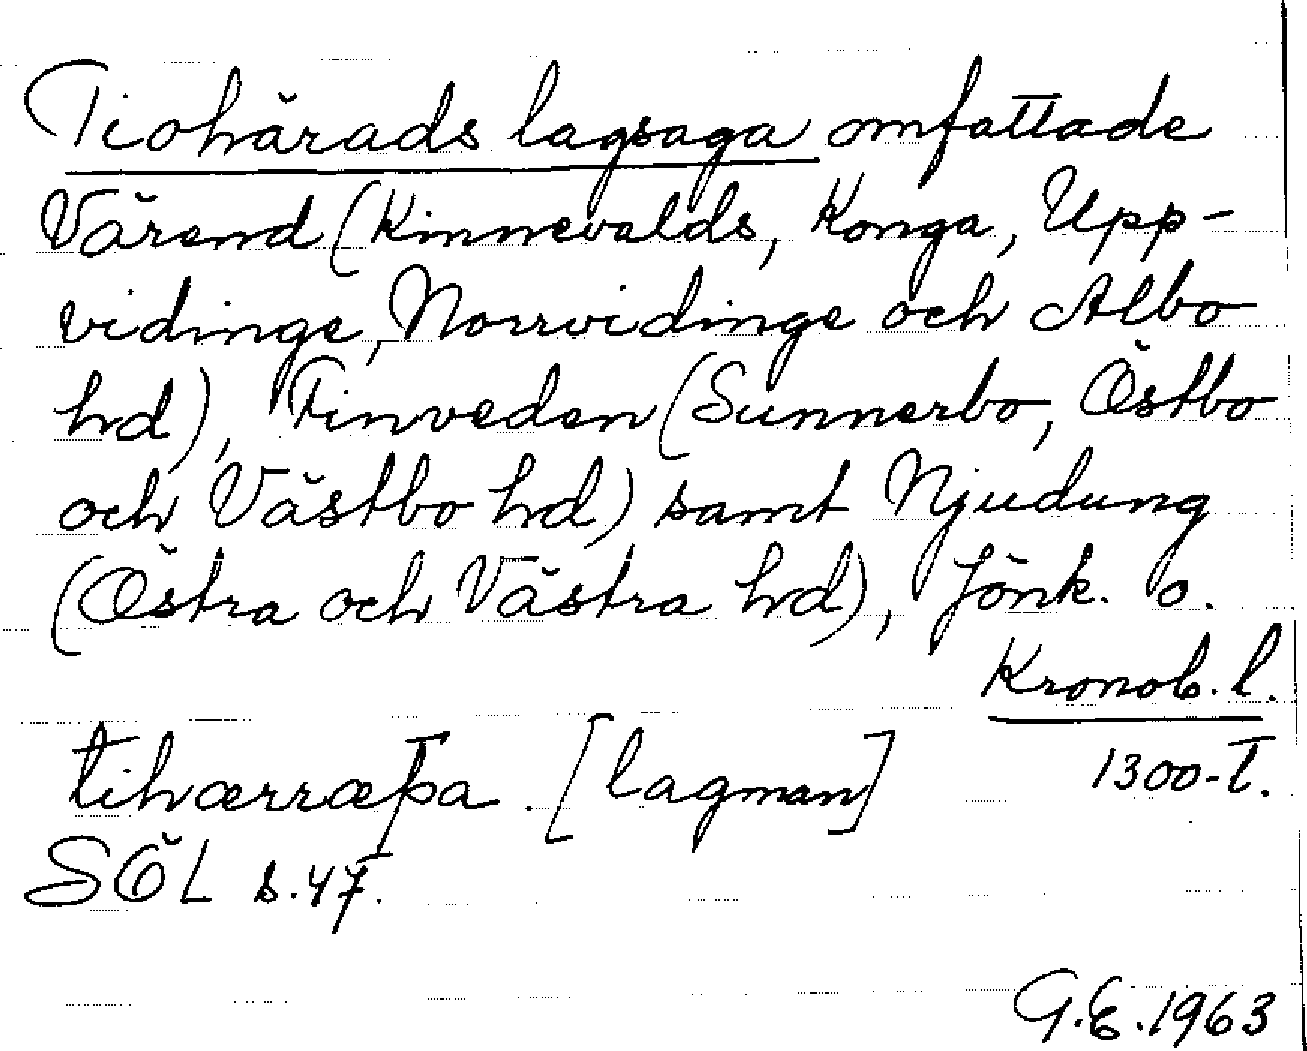 Tiohärads lagsaga omfattade
Värend (Kinnevalds, Konga, Upp-
vidinge, Norrvidinge och Albo
hrd), Finveden (Sunnerbo, Östbo
och Västbo hrd) samt Njudung
(Östra och Västra hrd), Jönk. o.
Kronob. l.
tihærræþa [lagman] 1300-t.
SÖL s. 47.
G.E. 1963